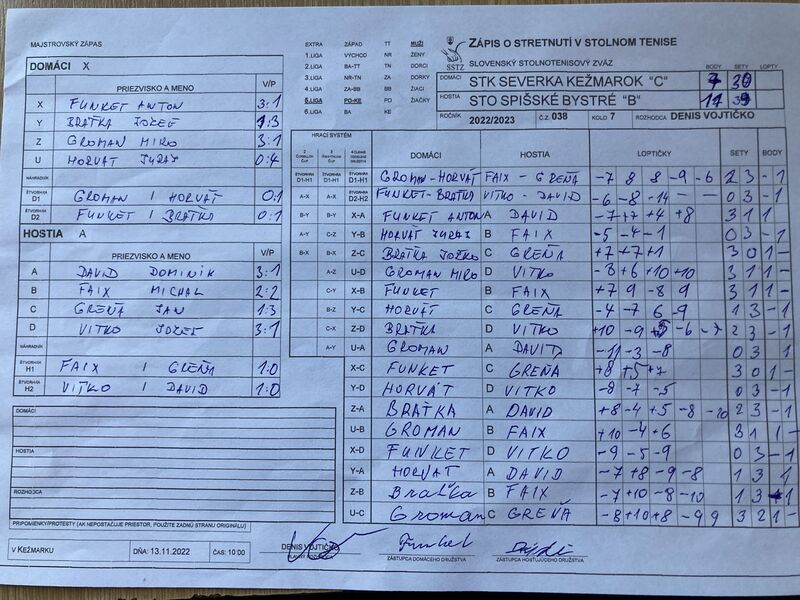 MAJSTROVSKÝ ZÁPAS
EXTRA ZÁPAD TT MUŽI
1.LIGA VÝCHOD NR ŽENY
2.LIGA BA-TT TN DORCI
3.LIGA NR-TN ZA DORKY
4.LIGA ZA-BB BB ŽIACI
5.LIGA PO-KE PO ŽIAČKY
6.LIGA BA KE
SSTZ
ZÁPIS O STRETNUTÍ V STOLNOM TENISE
SLOVENSKÝ STOLNOTENISOVÝ ZVÄZ
BODY SETY LOPTY
DOMÁCI STK SEVERKA KEŽMAROK "C" 7 30
HOSTIA STO SPIŠSKÉ BYSTRÉ "B" 11
ROČNÍK 2022/2023 Č.Z. 038 KOLO 7 ROZHODCA DENIS VOJTIČKO
DOMÁCI X
PRIEZVISKO A MENO V/P
X FUNKET ANTON 3:1
Y BRAŤKA JOZEF 1:3
Z GROMAN MIRO 3:1
U HORVÁT JURAJ 0:4
NÁHRADNÍK
ŠTVORHRA D1 GROMAN / HORVÁT 0:1
ŠTVORHRA D2 FUNKET / BRAŤKA 0:1
HOSTIA A
PRIEZVISKO A MENO V/P
A DAVID DOMINIK 3:1
B FAIX MICHAL 2:2
C GREŇA JAN 1:3
D VITKO JOZEF 3:1
NÁHRADNÍK
ŠTVORHRA H1 FAIX / GREŇA 1:0
ŠTVORHRA H2 VITKO / DAVID 1:0
DOMÁCI
HOSTIA
ROZHODCA
PRIPOMIENKY/PROTESTY (AK NEPOSTAČUJE PRIESTOR, POUŽITE ZADNÚ STRANU ORIGINÁLU)
HRACÍ SYSTÉM
DOMÁCI HOSTIA LOPTIČKY SETY BODY
ŠTVORHRA D1-H1 ŠTVORHRA D1-H1 GROMAN-HORVÁT FAIX - GREŇA -7 8 8 -9 -6 2 3 - 1
A-X A-X ŠTVORHRA D2-H2 FUNKET-BRAŤKA VITKO - DAVID -6 -8 -14 — — 0 3 - 1
B-Y B-Y X-A FUNKET ANTON A DAVID -7 +7 +4 +8 3 1 1
A-Y C-Z Y-B HORVÁT JURAJ B FAIX -5 -4 -1 0 3 - 1
B-X B-X Z-C BRAŤKA JOŽKO C GREŇA +7 +7 +1 3 0 1 -
A-Z U-D GROMAN MIRO D VITKO -8 +6 +10 +10 3 1 1 -
C-Y X-B FUNKET B FAIX +7 9 -8 9 3 1 1 -
B-Z Y-C HORVÁT C GREŇA -4 -7 6 -9 1 3 - 1
C-X Z-D BRAŤKA D VITKO +10 -9 +5 -6 -7 2 3 - 1
A-Y U-A GROMAN A DAVID -11 -3 -8 0 3 1
X-C FUNKET C GREŇA +8 +5 +7 3 0 1 -
Y-D HORVÁT D VITKO -8 -7 -5 0 3 - 1
Z-A BRAŤKA A DAVID +8 -4 +5 -8 -10 2 3 - 1
U-B GROMAN B FAIX +10 -4 +6 3 1 1 -
X-D FUNKET D VITKO -9 -5 -9 0 3 - 1
Y-A HORVÁT A DAVID -7 +8 -9 -8 1 3 1
Z-B Braťka B FAIX -7 +10 -8 -10 1 3 - 1
U-C Groman C GREŇA -8 +10 +8 -9 9 3 2 1 -
V KEŽMARKU DŇA: 13.11.2022 ČAS: 10:00 DENIS VOJTIČKO Funket
ZÁSTUPCA DOMÁCEHO DRUŽSTVA ZÁSTUPCA HOSŤUJÚCEHO DRUŽSTVA